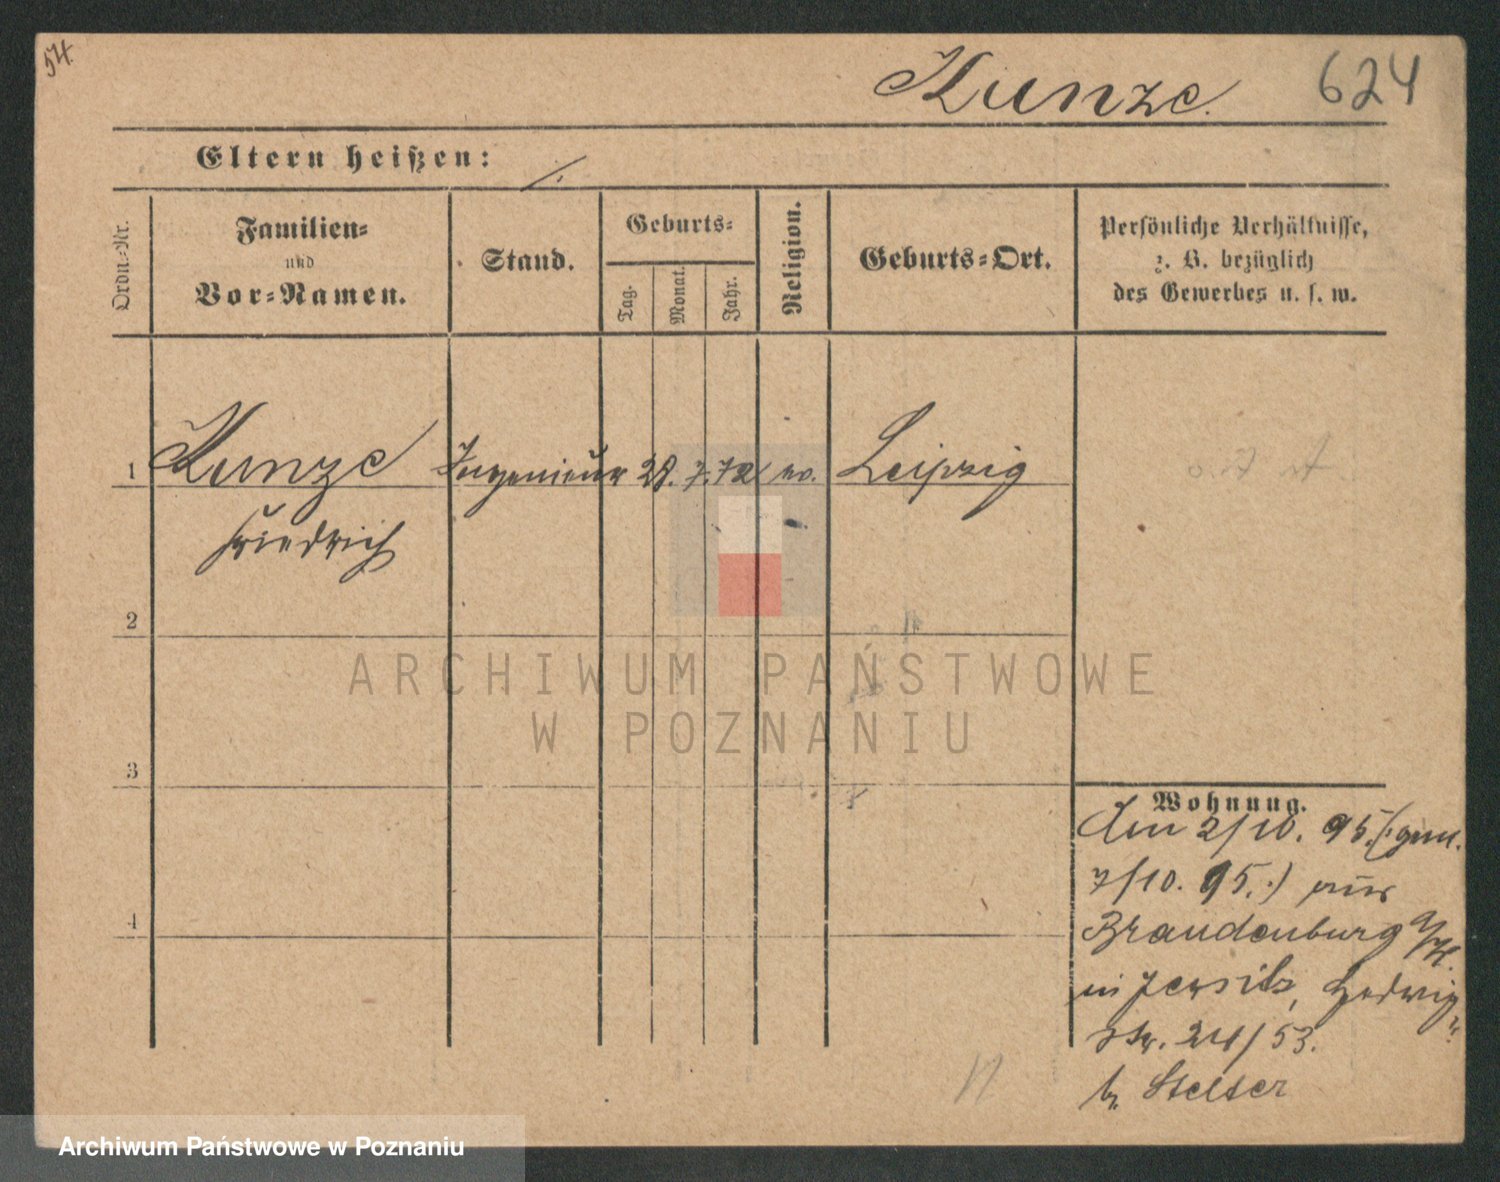 54.
Kunze.
624
Eltern heißen: ./.
Ordn.-Nr.
Familien-
und
Vor-Namen.
Stand.
Geburts-
Tag.
Monat.
Jahr.
Religion.
Geburts-Ort.
Persönliche Verhältnisse,
z. B. bezüglich
des Gewerbes u. s. w.
1 Kunze Ingenieur 28. 7. 72 ev. Leipzig
Friedrich
2
3
4
Wohnung.
Am 2/10. 95. (: gem.
7/10. 95. :) aus
Brandenburg a/H.
in Jersitz, Hedwig-
str. 24/53.
b. Stelter
ARCHIWUM PAŃSTWOWE
W POZNANIU
Archiwum Państwowe w Poznaniu